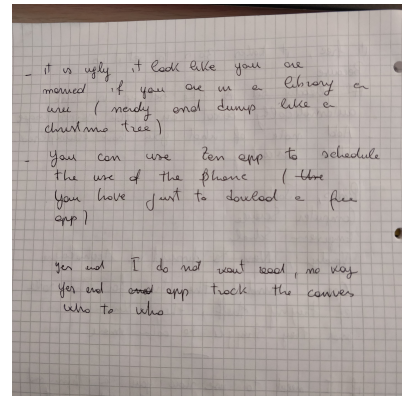 - it is ugly it look like you are
married if you are in a library on
( nerdy and dump like a
christmas tree )
- you can use Zen app to schedule
the use of the phone ( the
you have just to donload a free
app )
yes and I do not want read, no way
yes and and app track the conves
who to who